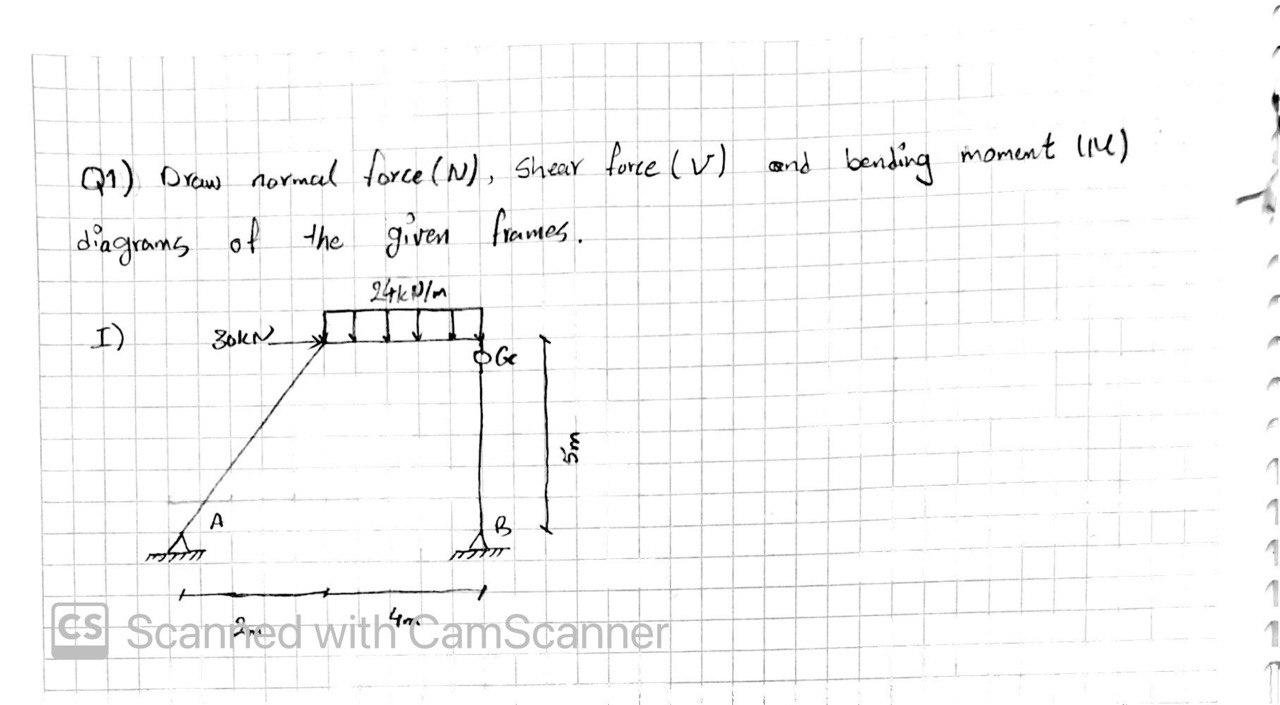 Q1) Draw normal force (N), Shear force (V) and bending moment (M)
diagrams of the given frames.
24kN/m
I) 30kN
G
5m
A B
2m 4m
CS Scanned with CamScanner